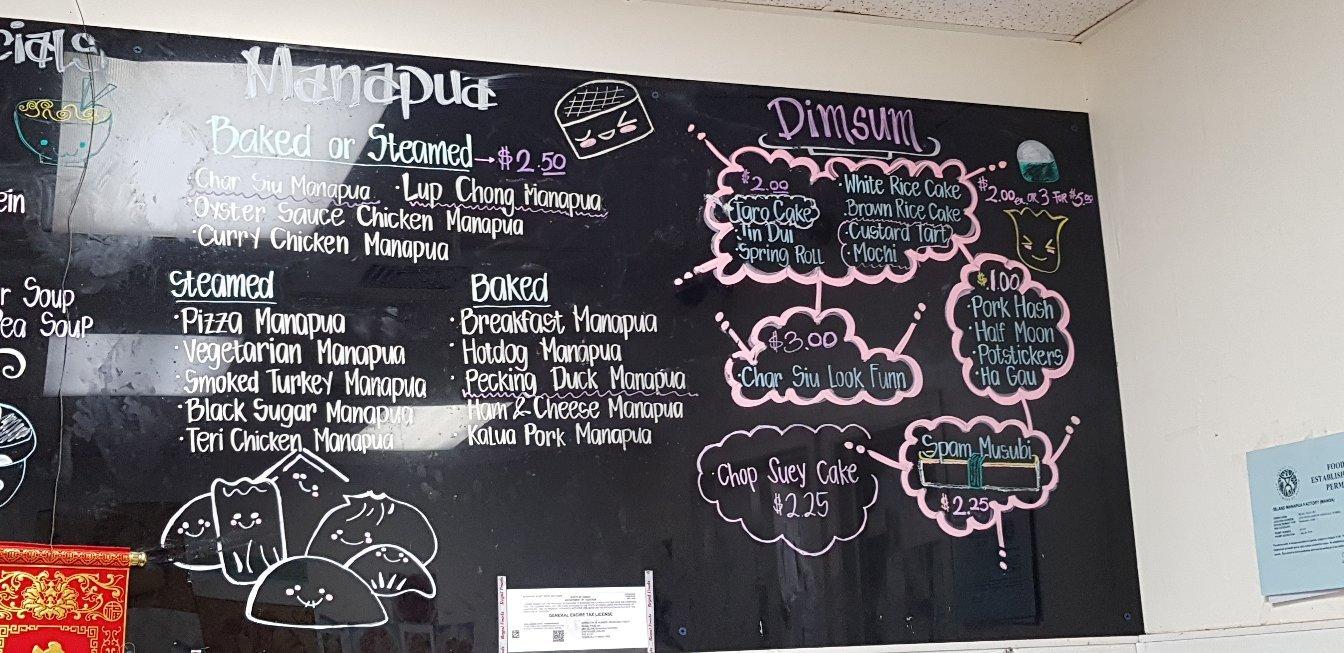 cials
ein
r Soup
ea Soup
Manapua
Baked or Steamed → $2.50
Char Siu Manapua · Lup Chong Manapua
· Oyster Sauce Chicken Manapua
· Curry Chicken Manapua
Steamed
· Pizza Manapua
· Vegetarian Manapua
· Smoked Turkey Manapua
· Black Sugar Manapua
· Teri Chicken Manapua
Baked
· Breakfast Manapua
· Hotdog Manapua
· Pecking Duck Manapua
· Ham & Cheese Manapua
· Kalua Pork Manapua
Dimsum
$2.00
Taro Cake
Jin Dui
· Spring Roll
· White Rice Cake
· Brown Rice Cake
· Custard Tart
· Mochi
$2.00 ea. OR 3 FOR $5.00
$1.00
· Pork Hash
· Half Moon
· Potstickers
· Ha Gau
$3.00
· Char Siu Look Funn
· Chop Suey Cake
$2.25
Spam Musubi
$2.25
GENERAL EXCISE TAX LICENSE
FOOD
ESTABLIS
PERM
ISLAND MANAPUA FACTORY (MANOA)